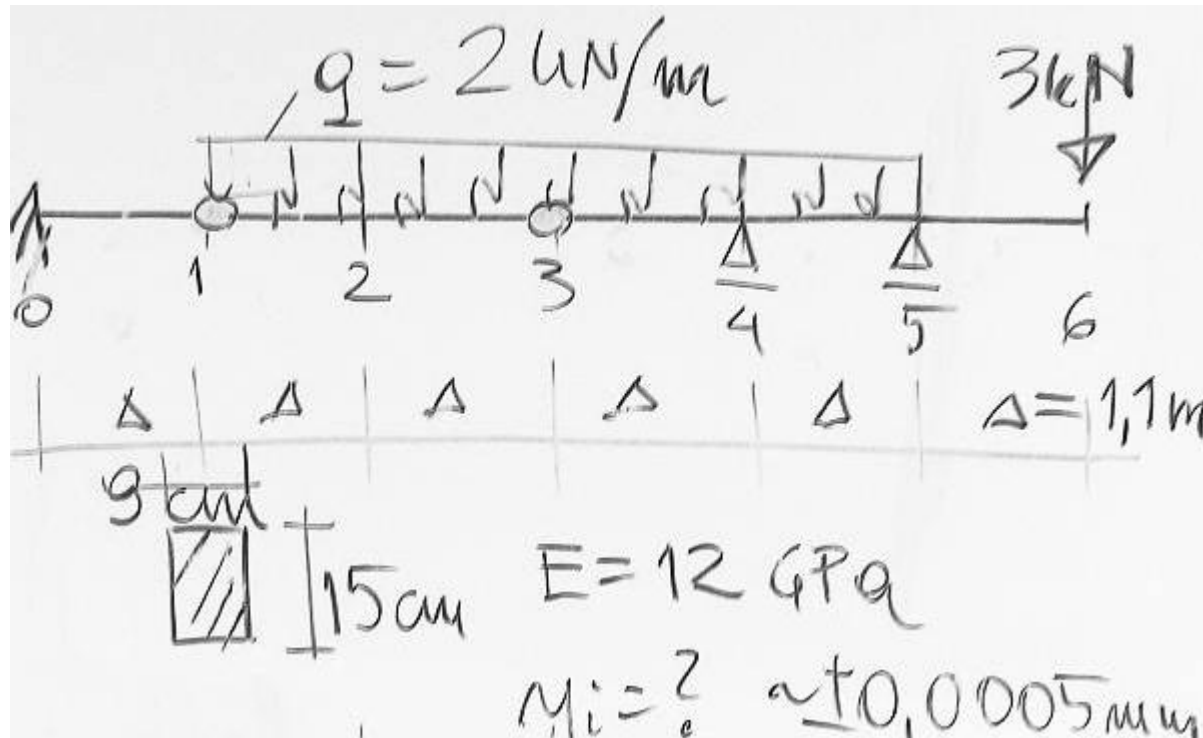 q = 2 kN/m
3kN
0 1 2 3 4 5 6
Δ Δ Δ Δ Δ Δ = 1,1m
9 cm
15cm E = 12 GPa
Mi = ? ~±0,0005mm